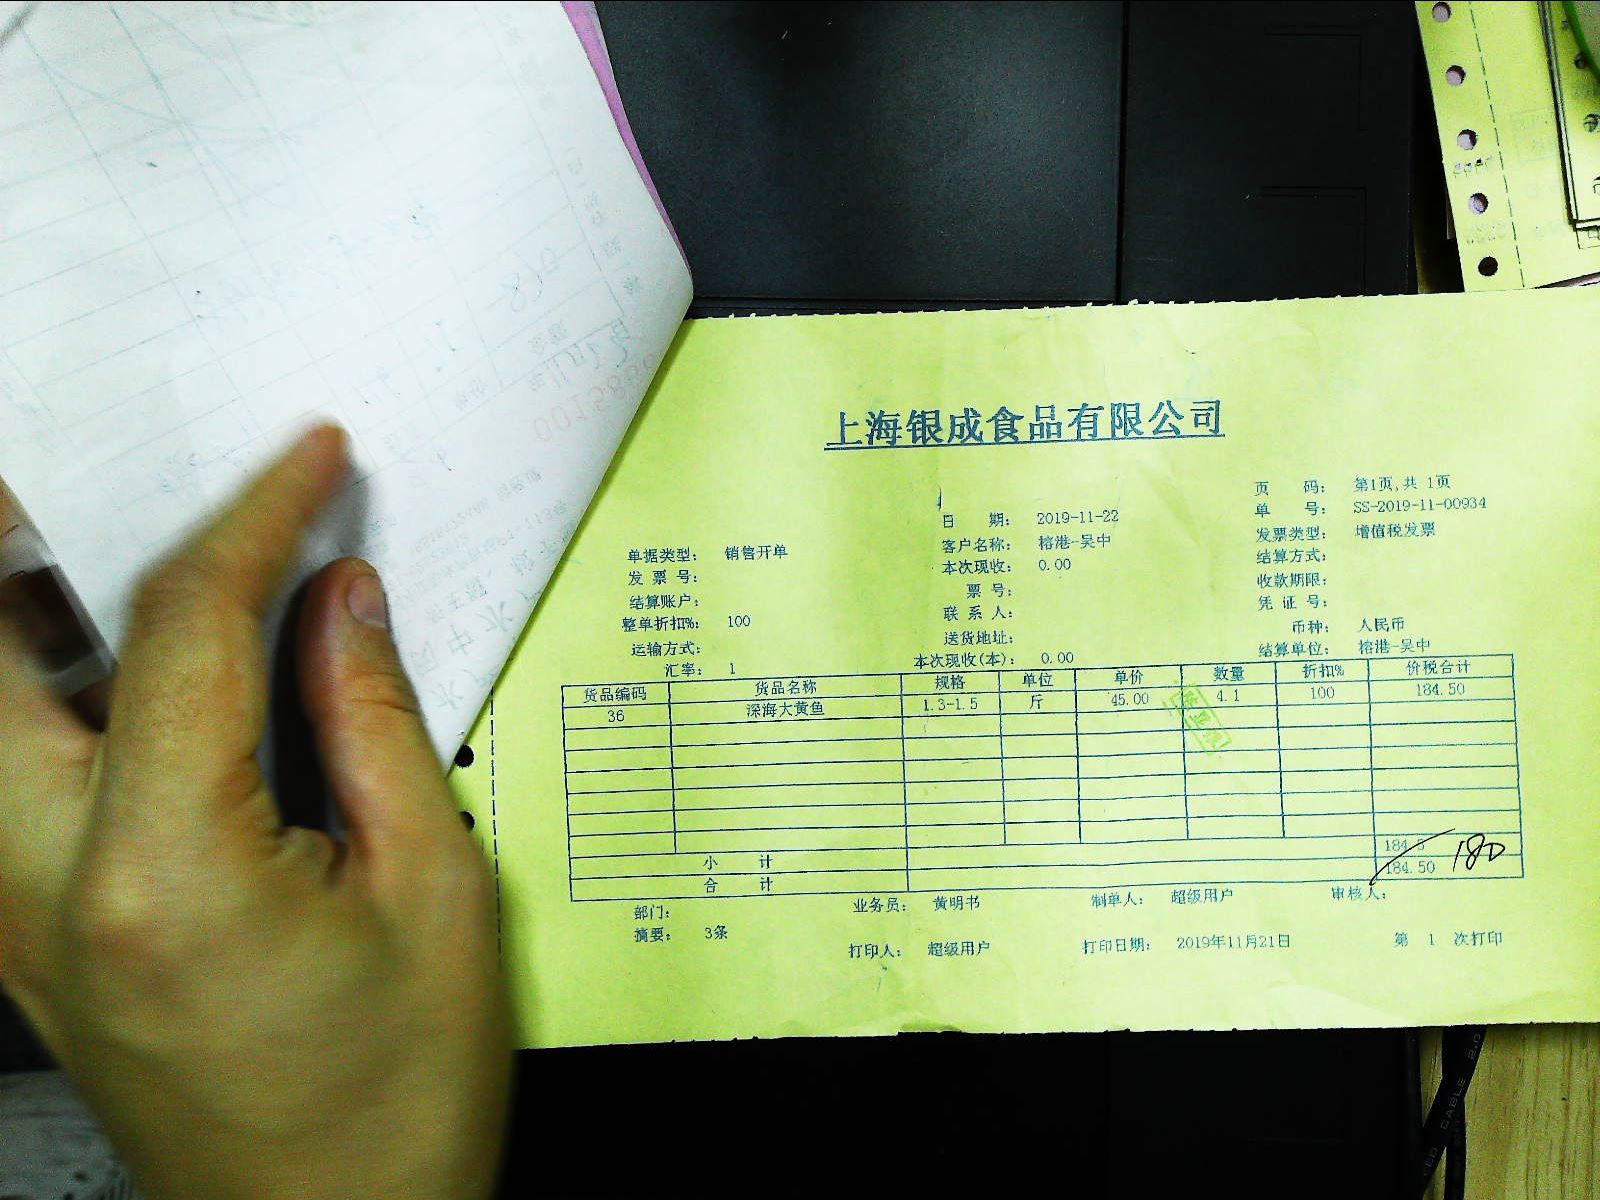 上海银成食品有限公司
页 码： 第1页,共 1页
日 期： 2019-11-22 单 号： SS-2019-11-00934
单据类型： 销售开单 客户名称： 榕港-吴中 发票类型： 增值税发票
发 票 号： 本次现收： 0.00 结算方式：
结算账户： 票 号： 收款期限：
整单折扣%： 100 联 系 人： 凭 证 号：
运输方式： 送货地址： 币种： 人民币
汇率： 1 本次现收(本)： 0.00 结算单位： 榕港-吴中
货品编码 货品名称 规格 单位 单价 数量 折扣% 价税合计
36 深海大黄鱼 1.3-1.5 斤 45.00 4.1 100 184.50
小 计 184.5
合 计 184.50 180
部门： 业务员： 黄明书 制单人： 超级用户 审核人：
摘要： 3条 打印人： 超级用户 打印日期： 2019年11月21日 第 1 次打印
CABLE 2.0